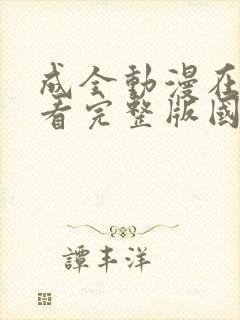 成全動漫在
看完整版國
譚丰洋